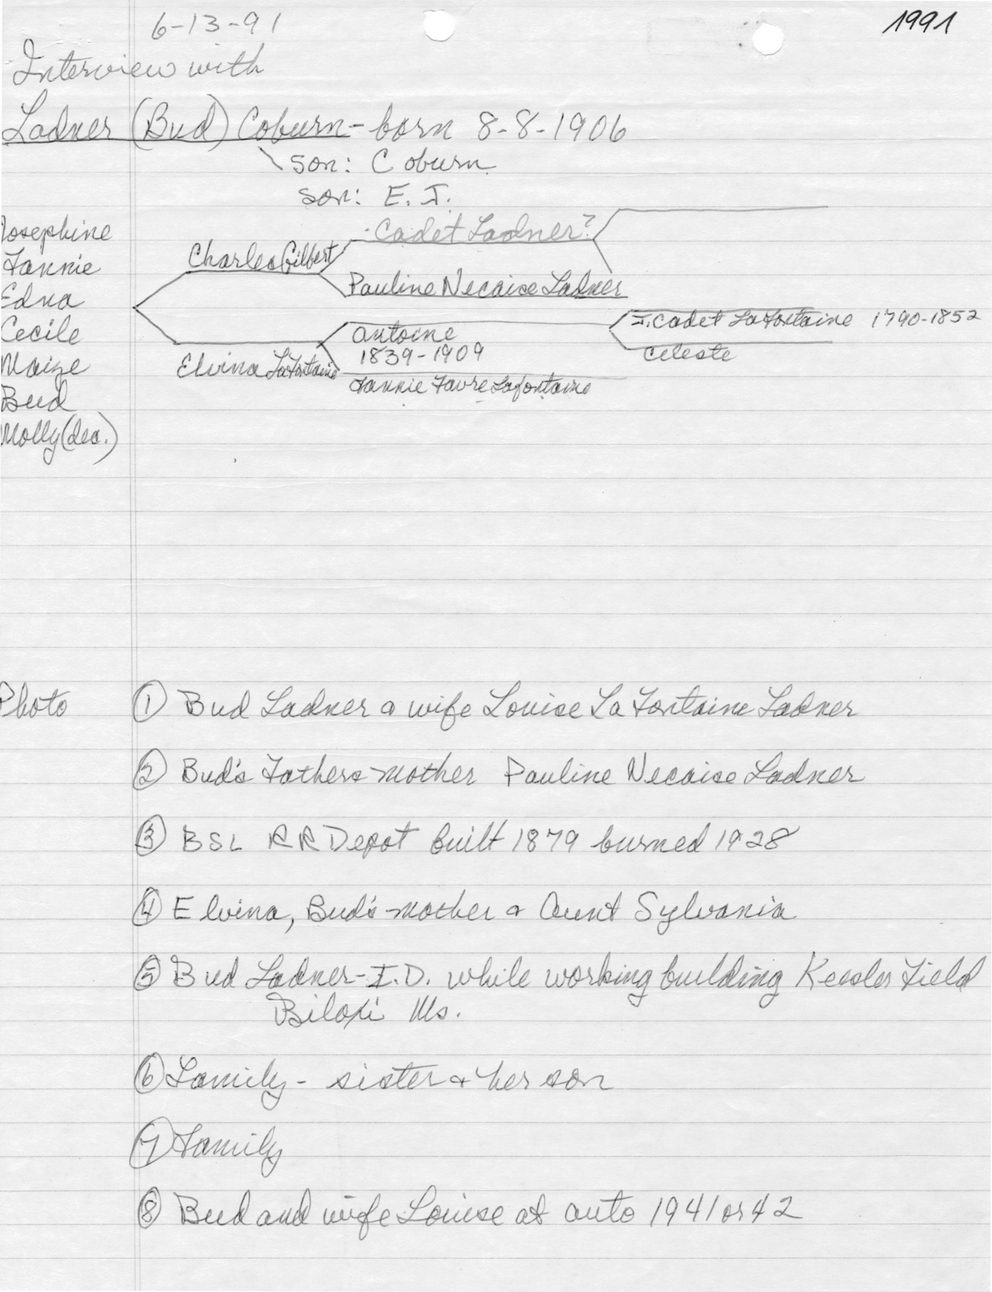 6-13-91
1991
Interview with
Ladner (Bud) Coburn - born 8-8-1906
son: Coburn
son: E. J.
Josephine
Fannie
Edna
Cecile
Maize
Bud
Molly (dec.)
Charles Gilbert
Cadet Ladner?
Pauline Necaise Ladner
Elvina LaFontaine
Antoine
1839-1909
Fannie Favre Lafontaine
J. Cadet LaFontaine 1790-1852
Celeste
Photo
① Bud Ladner & wife Louise LaFontaine Ladner
② Bud's Fathers mother Pauline Necaise Ladner
③ BSL RR Depot built 1879 burned 1928
④ Elvina, Bud's mother & Aunt Sylvania
⑤ Bud Ladner - I.D. while working building Keesler Field
Biloxi Ms.
⑥ Family - sister & her son
⑦ Family
⑧ Bud and wife Louise at auto 1941 or 42